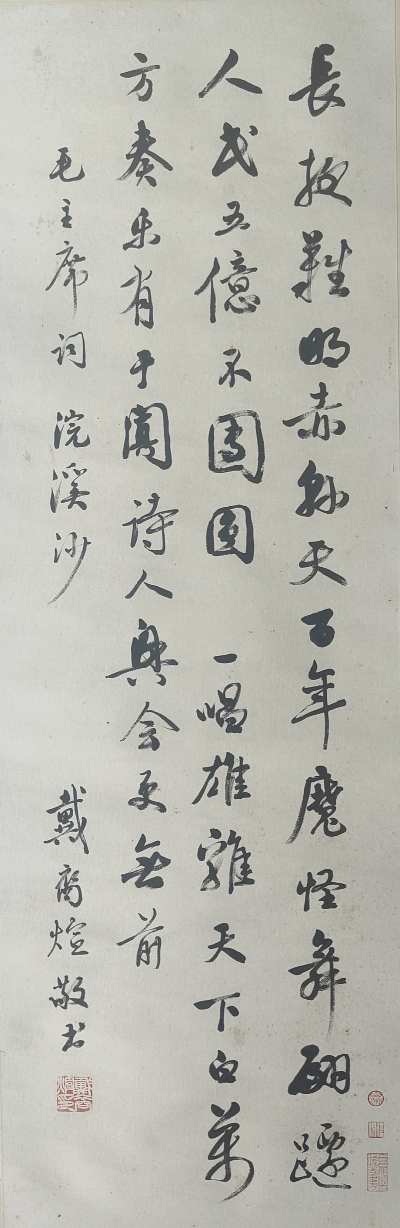 長夜難明赤縣天百年魔怪舞翩躚
人民五億不團圓 一唱雄雞天下白萬
方奏乐有于闐詩人興会更無前
毛主席词 浣溪沙 戴裔煊敬书